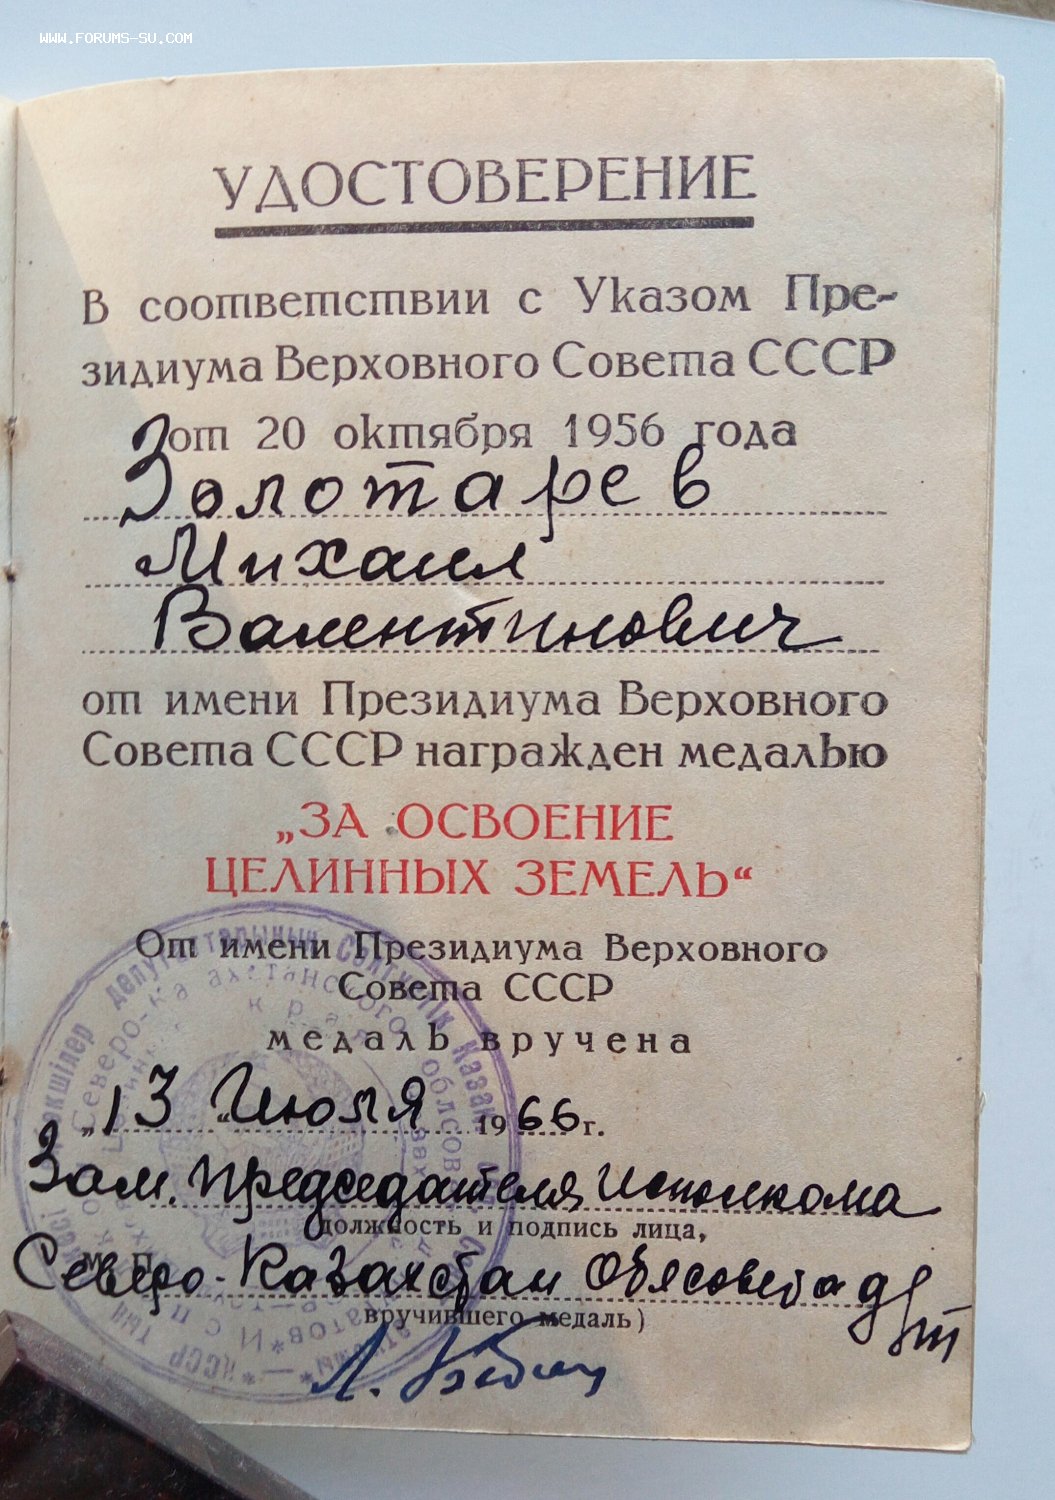 WWW.FORUMS-SU.COM
УДОСТОВЕРЕНИЕ
В соответствии с Указом Пре-
зидиума Верховного Совета СССР
от 20 октября 1956 года
Золотарев
Михаил
Валентинович
от имени Президиума Верховного
Совета СССР награжден медалью
„ЗА ОСВОЕНИЕ
ЦЕЛИННЫХ ЗЕМЕЛЬ“
От имени Президиума Верховного
Совета СССР
медаль вручена
„13“ Июля 1966 г.
Зам. председателя исполкома
должность и подпись лица,
Северо-Казахстан облсовета д/т
вручившего медаль)